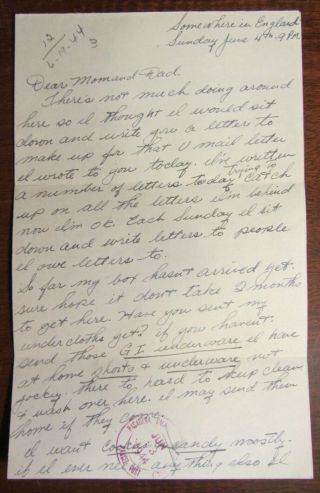 12
6-9-44
Somewhere in England
Sunday June 4th. 9 PM
Dear Mom and Dad.
There's not much doing around
here so I thought I would sit
down and write you a letter to
make up for that V mail letter
I wrote to you today. I've written
a number of letters today trying to catch
up on all the letters I'm behind
now I'm OK. Each Sunday I sit
down and write letters to people
I owe letters to.
So far my box hasn't arrived yet.
sure hope it don't take 2 months
to get here. Have you sent my
undercloths yet? if you haven't.
send those GI underware I have
at home shorts & underware not
jockey. there to hard to keep clean
& wash over here. I may send them
home if they come.
I want candy mostly.
if I ever need anything else I'll